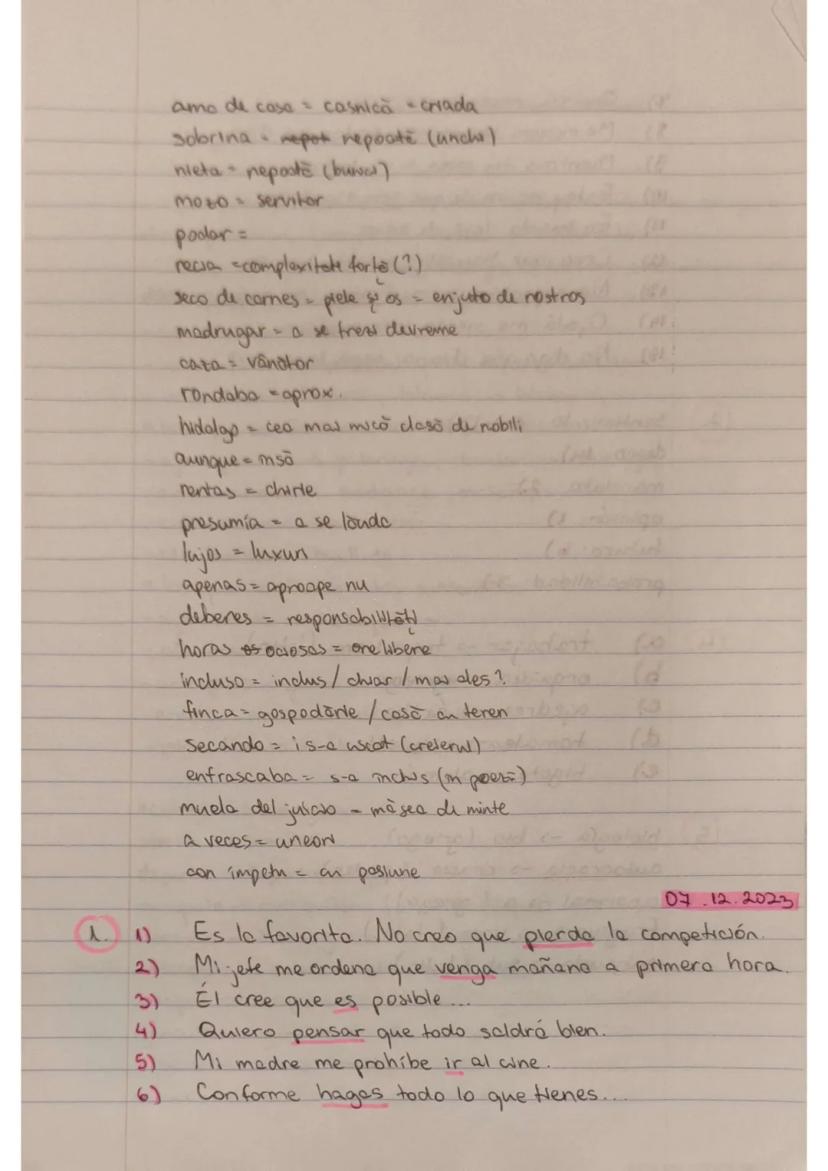 amo de casa = casnică = criada
sobrina = nepot nepoată (unchi)
nieta = nepoată (bunici)
mozo = servitor
podar =
recia = complexitate fortă (?)
seco de carnes = piele și os = enjuto de rostros
madrugar = a se trezi devreme
caza = vânător
rondaba = aprox.
hidalgo = cea mai mică clasă de nobili
aunque = însă
rentas = chirie
presumía = a se lăuda
lujos = luxuri
apenas = aproape nu
deberes = responsabilități
horas ociosas = ore libere
incluso = inclus / chiar / mai ales?
finca = gospodărie / casă cu teren
secando = i s-a uscat (creierul)
enfrascaba = s-a închis (în poezie)
muela del juicio = măsea de minte
a veces = uneori
con ímpetu = cu pasiune
07.12.2023
1. 1) Es la favorita. No creo que pierda la competición.
2) Mi jefe me ordena que venga mañana a primera hora.
3) Él cree que es posible...
4) Quiero pensar que todo saldrá bien.
5) Mi madre me prohíbe ir al cine.
6) Conforme hagas todo lo que tienes...